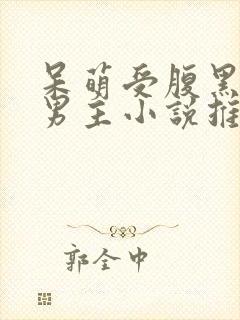 呆萌受腹黑
男主小說推
郭全中